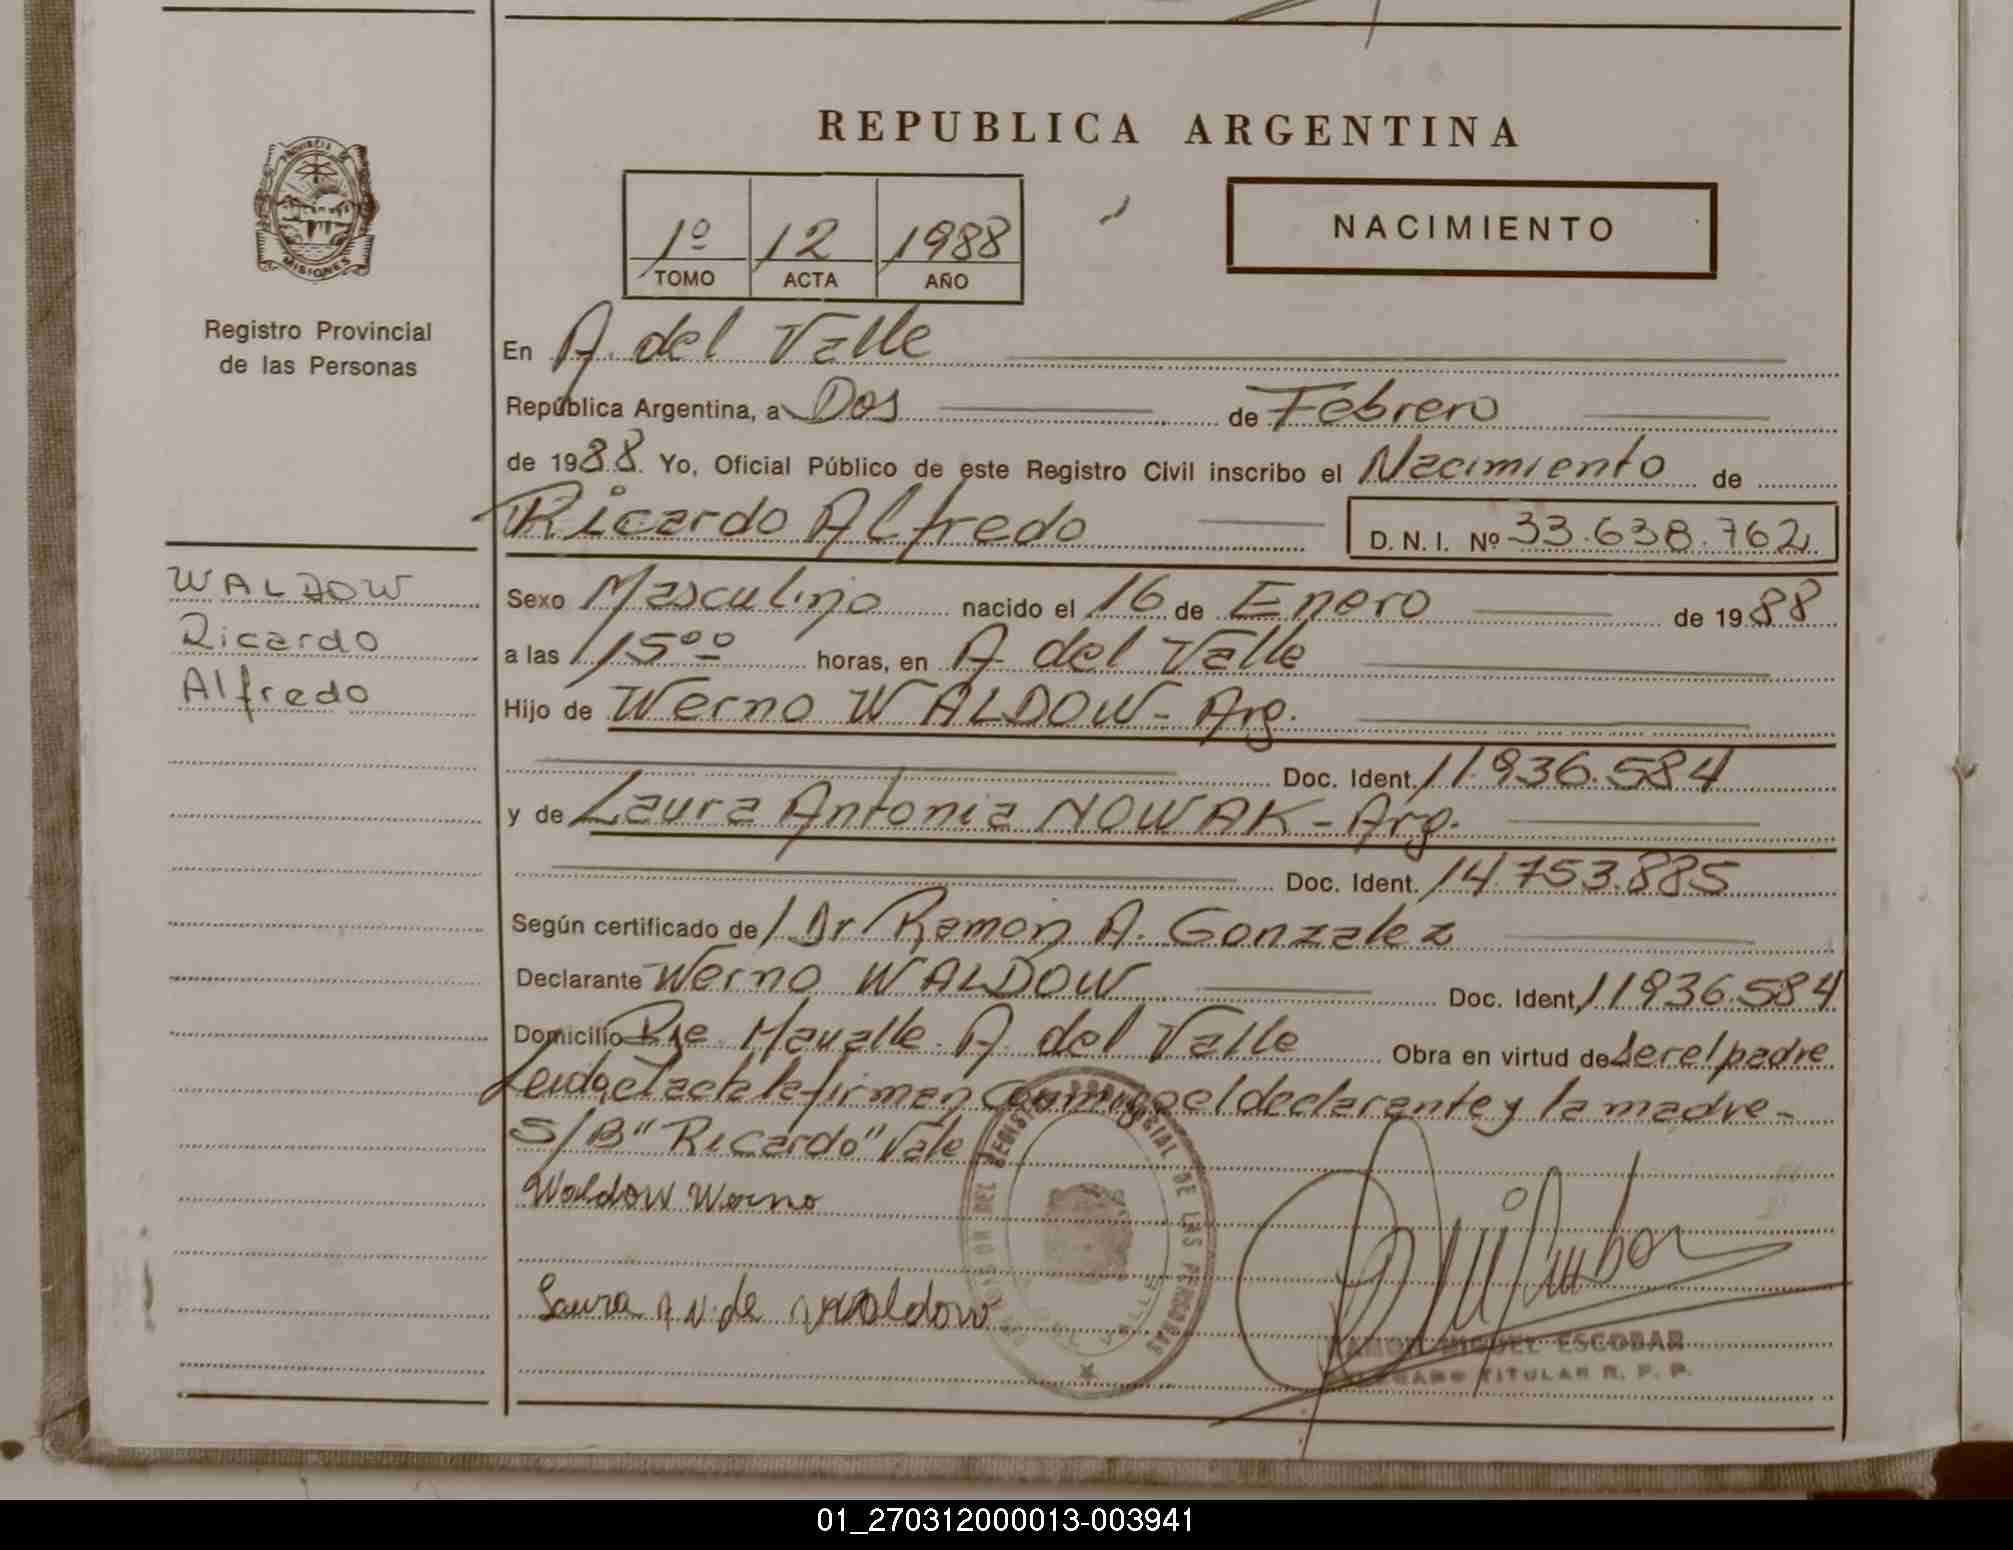 REPUBLICA ARGENTINA
PROVINCIA DE
MISIONES
Registro Provincial
de las Personas
1º 12 1988
TOMO ACTA AÑO
NACIMIENTO
En A. del Valle
República Argentina, a Dos de Febrero
de 1988. Yo, Oficial Público de este Registro Civil inscribo el Nacimiento de
Ricardo Alfredo D. N. I. Nº 33.638.762
WALDOW
Ricardo
Alfredo
Sexo Masculino nacido el 16 de Enero de 1988
a las 15⁰⁰ horas, en A. del Valle
Hijo de Werno WALDOW - Arg.
Doc. Ident. 11.936.584
y de Laura Antonia NOWAK - Arg.
Doc. Ident. 14.753.885
Según certificado de Dr Ramon A. Gonzalez
Declarante Werno WALDOW Doc. Ident. 11936.584
Domicilio A. del Valle Obra en virtud de ser el padre
Leida el acta la firman conmigo el declarante y la madre -
S/B "Ricardo" Vale
Waldow Werno
Laura A N. de Waldow
REGISTRO PROVINCIAL DE LAS PERSONAS
RAMON MIGUEL ESCOBAR
TITULAR R. P. P.
01_270312000013-003941